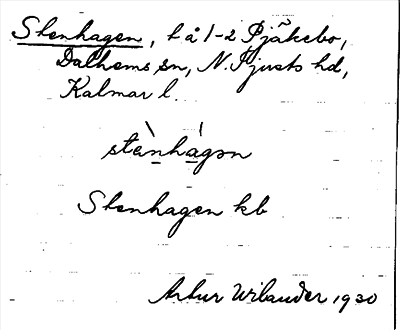 Stenhagen, t å 1-2 Pjäkebo,
Dalhems sn, N. Tjusts hd,
Kalmar l.
stè̱nhá̱gən
Stenhagen kb
Artur Wilander 1930